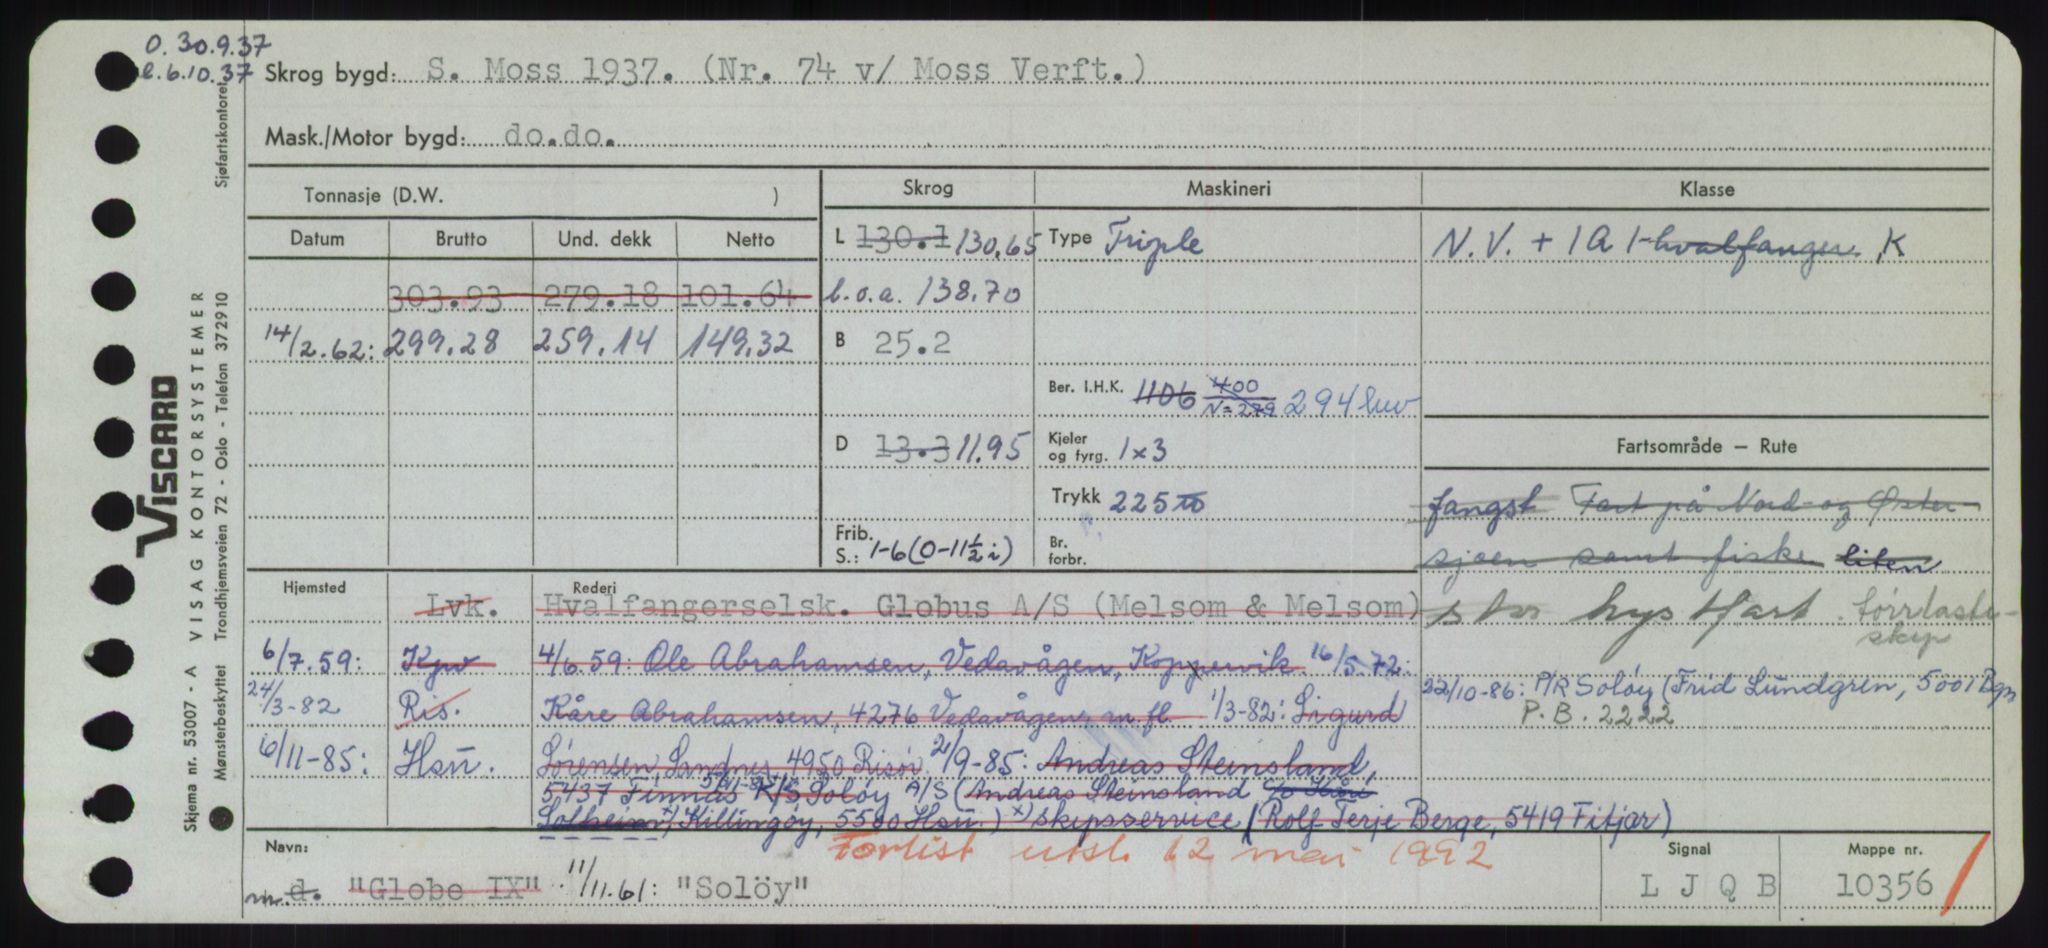 O. 30.9.37
l. 6.10.37
Skrog bygd: S. Moss 1937. (Nr. 74 v/ Moss Verft.)
Mask./Motor bygd: do.do.
Tonnasje (D.W. )
Datum Brutto Und. dekk Netto
303.93 279.18 101.64
14/2.62: 299.28 259.14 149.32
Skrog
L 130.1 130,65
l.o.a. 138.70
B 25.2
D 13.3 11.95
Frib.
S.: 1-6 (0-11½ i)
Maskineri
Type Triple
Ber. I.H.K. 1106 400 294 kw
N=279
Kjeler
og fyrg. 1x3
Trykk 225
Br.
forbr.
Klasse
N.V. + 1A1-hvalfanger, K
Fartsområde – Rute
fangst Fart på Nord- og Øster-
sjøen samt fiske liten
kystfart. tørrlaste-
skip
22/10-86: P/R Soløy (Frid Lundgren, 5001 Bgn
P.B. 2222
Hjemsted Rederi
Lvk. Hvalfangerselsk. Globus A/S (Melsom & Melsom)
6/7.59: Kpv 4/6.59: Ole Abrahamsen, Vedavågen, Koppervik 16/5.72:
24/3-82 Ris. Kåre Abrahamsen, 4276 Vedavågen, m.fl. 1/3-82: Sigurd
6/11-85: Hsu. Sørensen, Sandnes, 4950 Risør 2/9-85: Andreas Steinsland,
5437 Finnås K/S Soløy A/S (Andreas Steinsland c/o Kåre
Solheim x) Killingøy, 5500 Hsu.) x) skipsservice (Rolf Terje Berge, 5419 Fitjar)
Forlist utsl. 12 mai 1992
Navn:
m. d. "Globe IX" 11/11.61: "Solöy"
Signal
L J Q B
Mappe nr.
10356
VISCARD
VISAG KONTORSYSTEMER
Skjema nr. 53007 - A
Mønsterbeskyttet Trondhjemsveien 72 - Oslo - Telefon 372910
Sjøfartskontoret